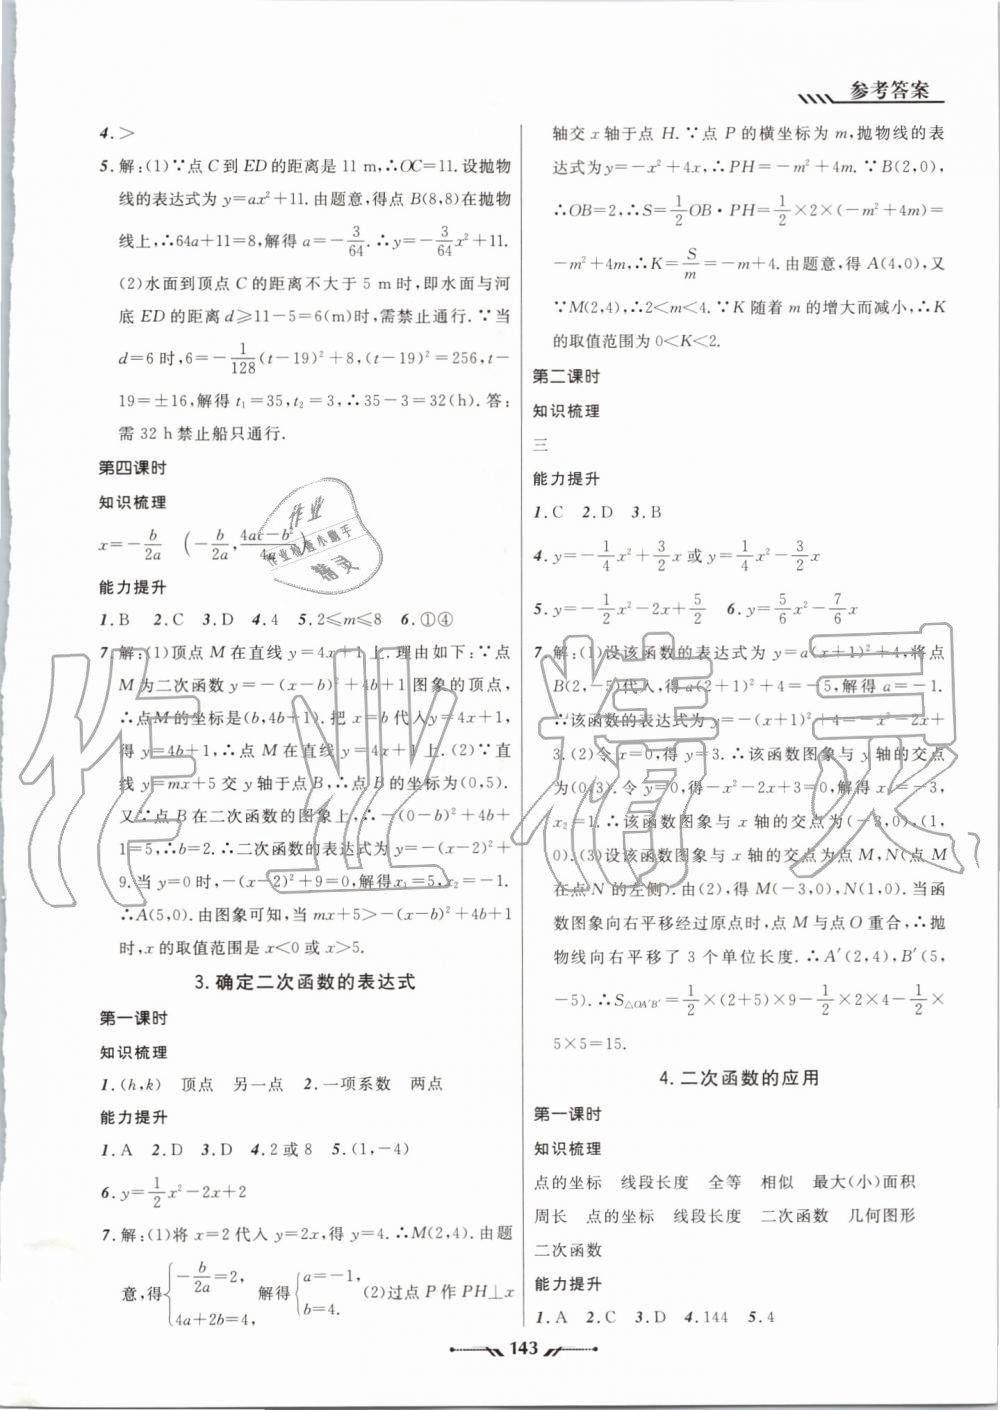 参考答案
4.>
5.解:(1)∵点C到ED的距离是11 m,∴OC=11.设抛物
线的表达式为y=ax²+11.由题意,得点B(8,8)在抛物
线上,∴64a+11=8,解得a=-3/64.∴y=-3/64x²+11.
(2)水面到顶点C的距离不大于5 m时,即水面与河
底ED的距离d⩾11-5=6(m)时,需禁止通行.∵当
d=6时,6=-1/128(t-19)²+8,(t-19)²=256,t-
19=±16,解得t₁=35,t₂=3,∴35-3=32(h).答:
需32 h禁止船只通行.
第四课时
知识梳理
x=-b/2a (-b/2a,4ac-b²/4a)
能力提升
1.B 2.C 3.D 4.4 5.2⩽m⩽8 6.①④
7.解:(1)顶点M在直线y=4x+1上.理由如下:∵点
M为二次函数y=-(x-b)²+4b+1图象的顶点,
∴点M的坐标是(b,4b+1).把x=b代入y=4x+1,
得y=4b+1,∴点M在直线y=4x+1上.(2)∵直
线y=mx+5交y轴于点B,∴点B的坐标为(0,5).
又∵点B在二次函数的图象上,∴-(0-b)²+4b+
1=5,∴b=2.∴二次函数的表达式为y=-(x-2)²+
9.当y=0时,-(x-2)²+9=0,解得x₁=5,x₂=-1.
∴A(5,0).由图象可知,当mx+5>-(x-b)²+4b+1
时,x的取值范围是x<0或x>5.
3.确定二次函数的表达式
第一课时
知识梳理
1.(h,k) 顶点 另一点 2.一项系数 两点
能力提升
1.A 2.D 3.D 4.2或8 5.(1,-4)
6.y=1/2x²-2x+2
7.解:(1)将x=2代入y=2x,得y=4.∴M(2,4).由题
意,得{-b/2a=2, 4a+2b=4, 解得{a=-1, b=4. (2)过点P作PH⊥x
轴交x轴于点H.∵点P的横坐标为m,抛物线的表
达式为y=-x²+4x,∴PH=-m²+4m.∵B(2,0),
∴OB=2,∴S=1/2OB·PH=1/2×2×(-m²+4m)=
-m²+4m,∴K=S/m=-m+4.由题意,得A(4,0),又
∵M(2,4),∴2<m<4.∵K随着m的增大而减小,∴K
的取值范围为0<K<2.
第二课时
知识梳理
三
能力提升
1.C 2.D 3.B
4.y=-1/4x²+3/2x或y=1/4x²-3/2x
5.y=-1/2x²-2x+5/2 6.y=5/6x²-7/6x
7.解:(1)设该函数的表达式为y=a(x+1)²+4,将点
B(2,-5)代入,得a(2+1)²+4=-5,解得a=-1.
∴该函数的表达式为y=-(x+1)²+4=-x²-2x+
3.(2)令x=0,得y=3.∴该函数图象与y轴的交点为
(0,3).令y=0,得-x²-2x+3=0,解得x₁=-3,
x₂=1.∴该函数图象与x轴的交点为(-3,0),(1,
0).(3)设该函数图象与x轴的交点为点M,N(点M
在点N的左侧).由(2),得M(-3,0),N(1,0).当函
数图象向右平移经过原点时,点M与点O重合,∴抛
物线向右平移了3个单位长度.∴A′(2,4),B′(5,
-5).∴S△OA′B′=1/2×(2+5)×9-1/2×2×4-1/2×
5×5=15.
4.二次函数的应用
第一课时
知识梳理
点的坐标 线段长度 全等 相似 最大(小)面积
周长 点的坐标 线段长度 二次函数 几何图形
二次函数
能力提升
1.A 2.C 3.D 4.144 5.4
143
作业
作业检查小助手
精灵
作业精灵